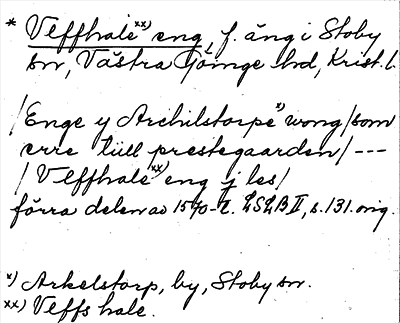 * Vleffhale xx) eng, f. äng i Stoby
sn, Västra Göinge hd, Krist. l.
/Enge y Archilstorpe x) wong/som
erre tüll prestegaarden/ ---
/ Vleffhale xx) eng j les/
förra delen av 1570-t. LSLB II, s. 131. orig.
x) Arkelstorp, by, Stoby sn.
xx) Vleffs hale.